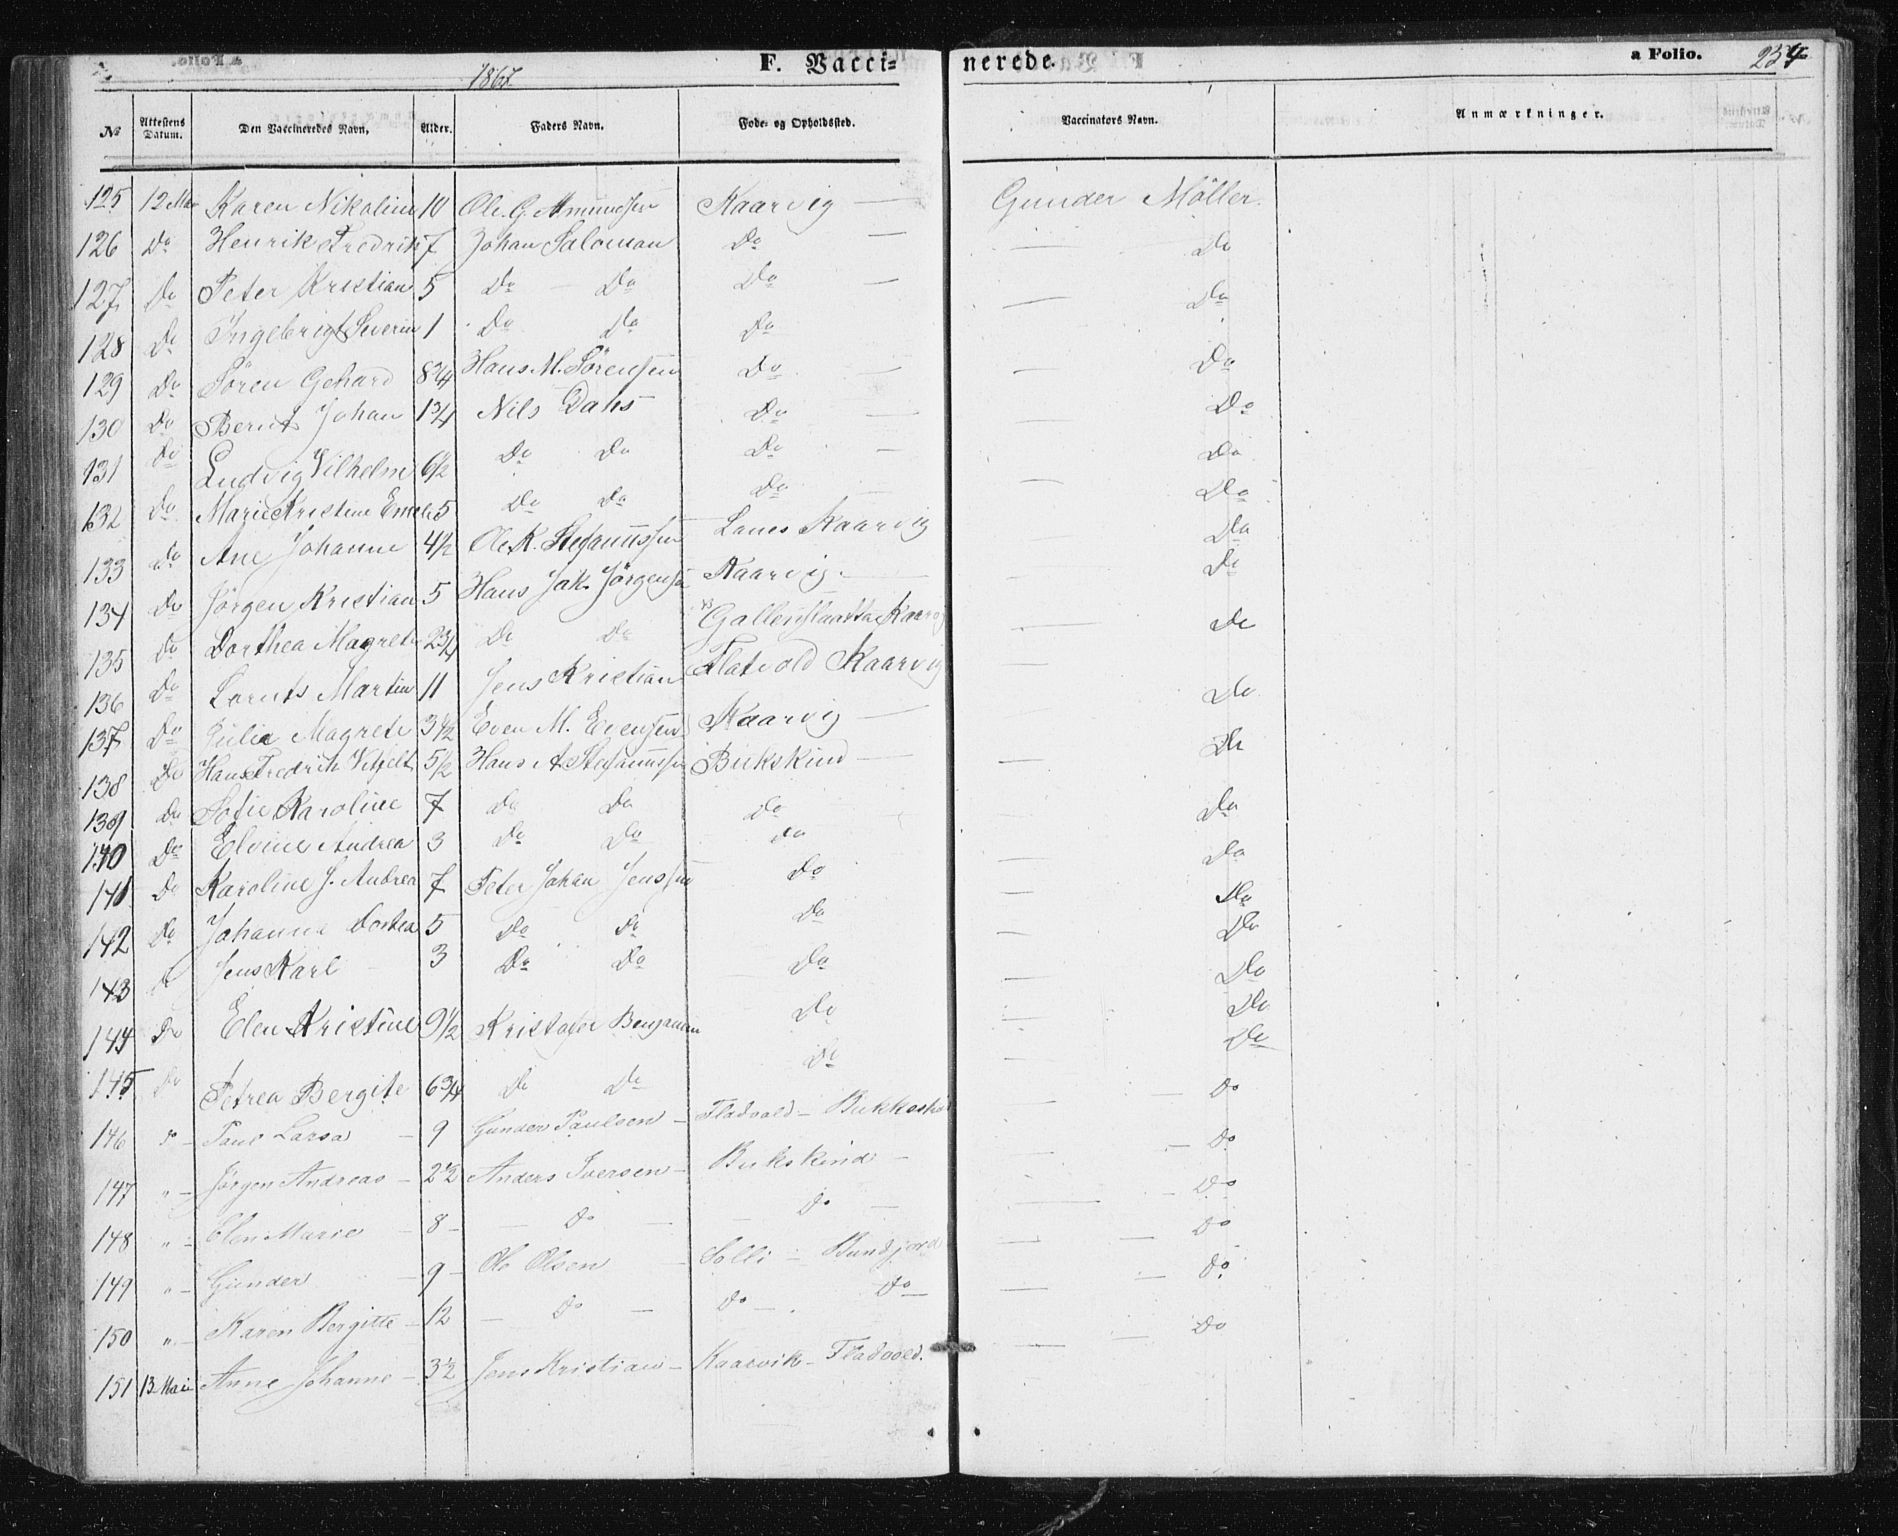 1867.
F. Vacci-
nerede.
a Folio. 254
No | Attestens Datum. | Den Vaccineredes Navn. | Alder. | Faders Navn. | Føde- og Opholdssted. | Vaccinators Navn. | Anmærkninger.
125 12 Mai Karen Nikoline 10 Ole G. Amundsen Kaarvig — Gunder Möller.
126 Do Henrik Fredrik 7 Johan Saloman Do — — Do
127 Do Peter Kristian 5 Do Do Do — — Do
128 Do Ingebrigt Severin 1 Do Do Do — Do
129 Do Sören Gehard 8 3/4 Hans M. Sörensen Do — — Do
130 Do Bernt Johan 1 3/4 Nils Dahs Do — — Do
131 Do Ludvig Vilhelm 6 1/2 Do Do Do — Do
132 Do Marie Kristine Emeli 5 Do Do Do — — Do
133 Do Ane Johanne 4 1/2 Ole K. Stefanussen Lanes Kaarvig Do
134 Do Jörgen Kristian 5 Hans Jak. Jörgensen Kaarvig — Do
135 Do Dorthea Magrete 2 3/4 Do Do Kaarvig — Do
136 Do Lornts Martin 11 Jens Kristian Flatvold Kaarvig — Do
137 Do Julie Magrete 3 1/2 Even M. Evensen Kaarvig — Do
138 Do Hans Fredrik 5 1/2 Hans A Stefanussen Bukskind — Do
139 Do Sofie Karoline 7 Do Do Do — Do
140 Do Elvine Andrea 3 Do Do Do — Do
141 Do Karoline J. Andrea 7 Peter Johan Jenssen Do — Do
142 Do Johanne Dortea 5 Do Do Do — Do
143 Do Jens Karl 3 Do Do Do — Do
144 Do Elen Kristine 9 1/2 Kristofer Benjamin Do — Do
145 Do Petrea Bergite 6 3/4 Do Do Do — Do
146 Do — Paul Larsa — 9 Gunder Paulsen — Fladvold — — — Do
147 " — Jörgen Andreas — 2 1/2 Anders Iversen — Bukskind — — — Do
148 " — Elen Marie — 8 — — Do — — Do — — — Do
149 " — Gunder — 9 — Ole Olsen — Solli — Bundfjord — Do
150 " — Karen Bergitte — 12 — Do — Do — Do — — — Do
151 13 Mai Anne Johanne — 3 1/2 Jens Kristian — Kaarvik — Fladvold. — — Do